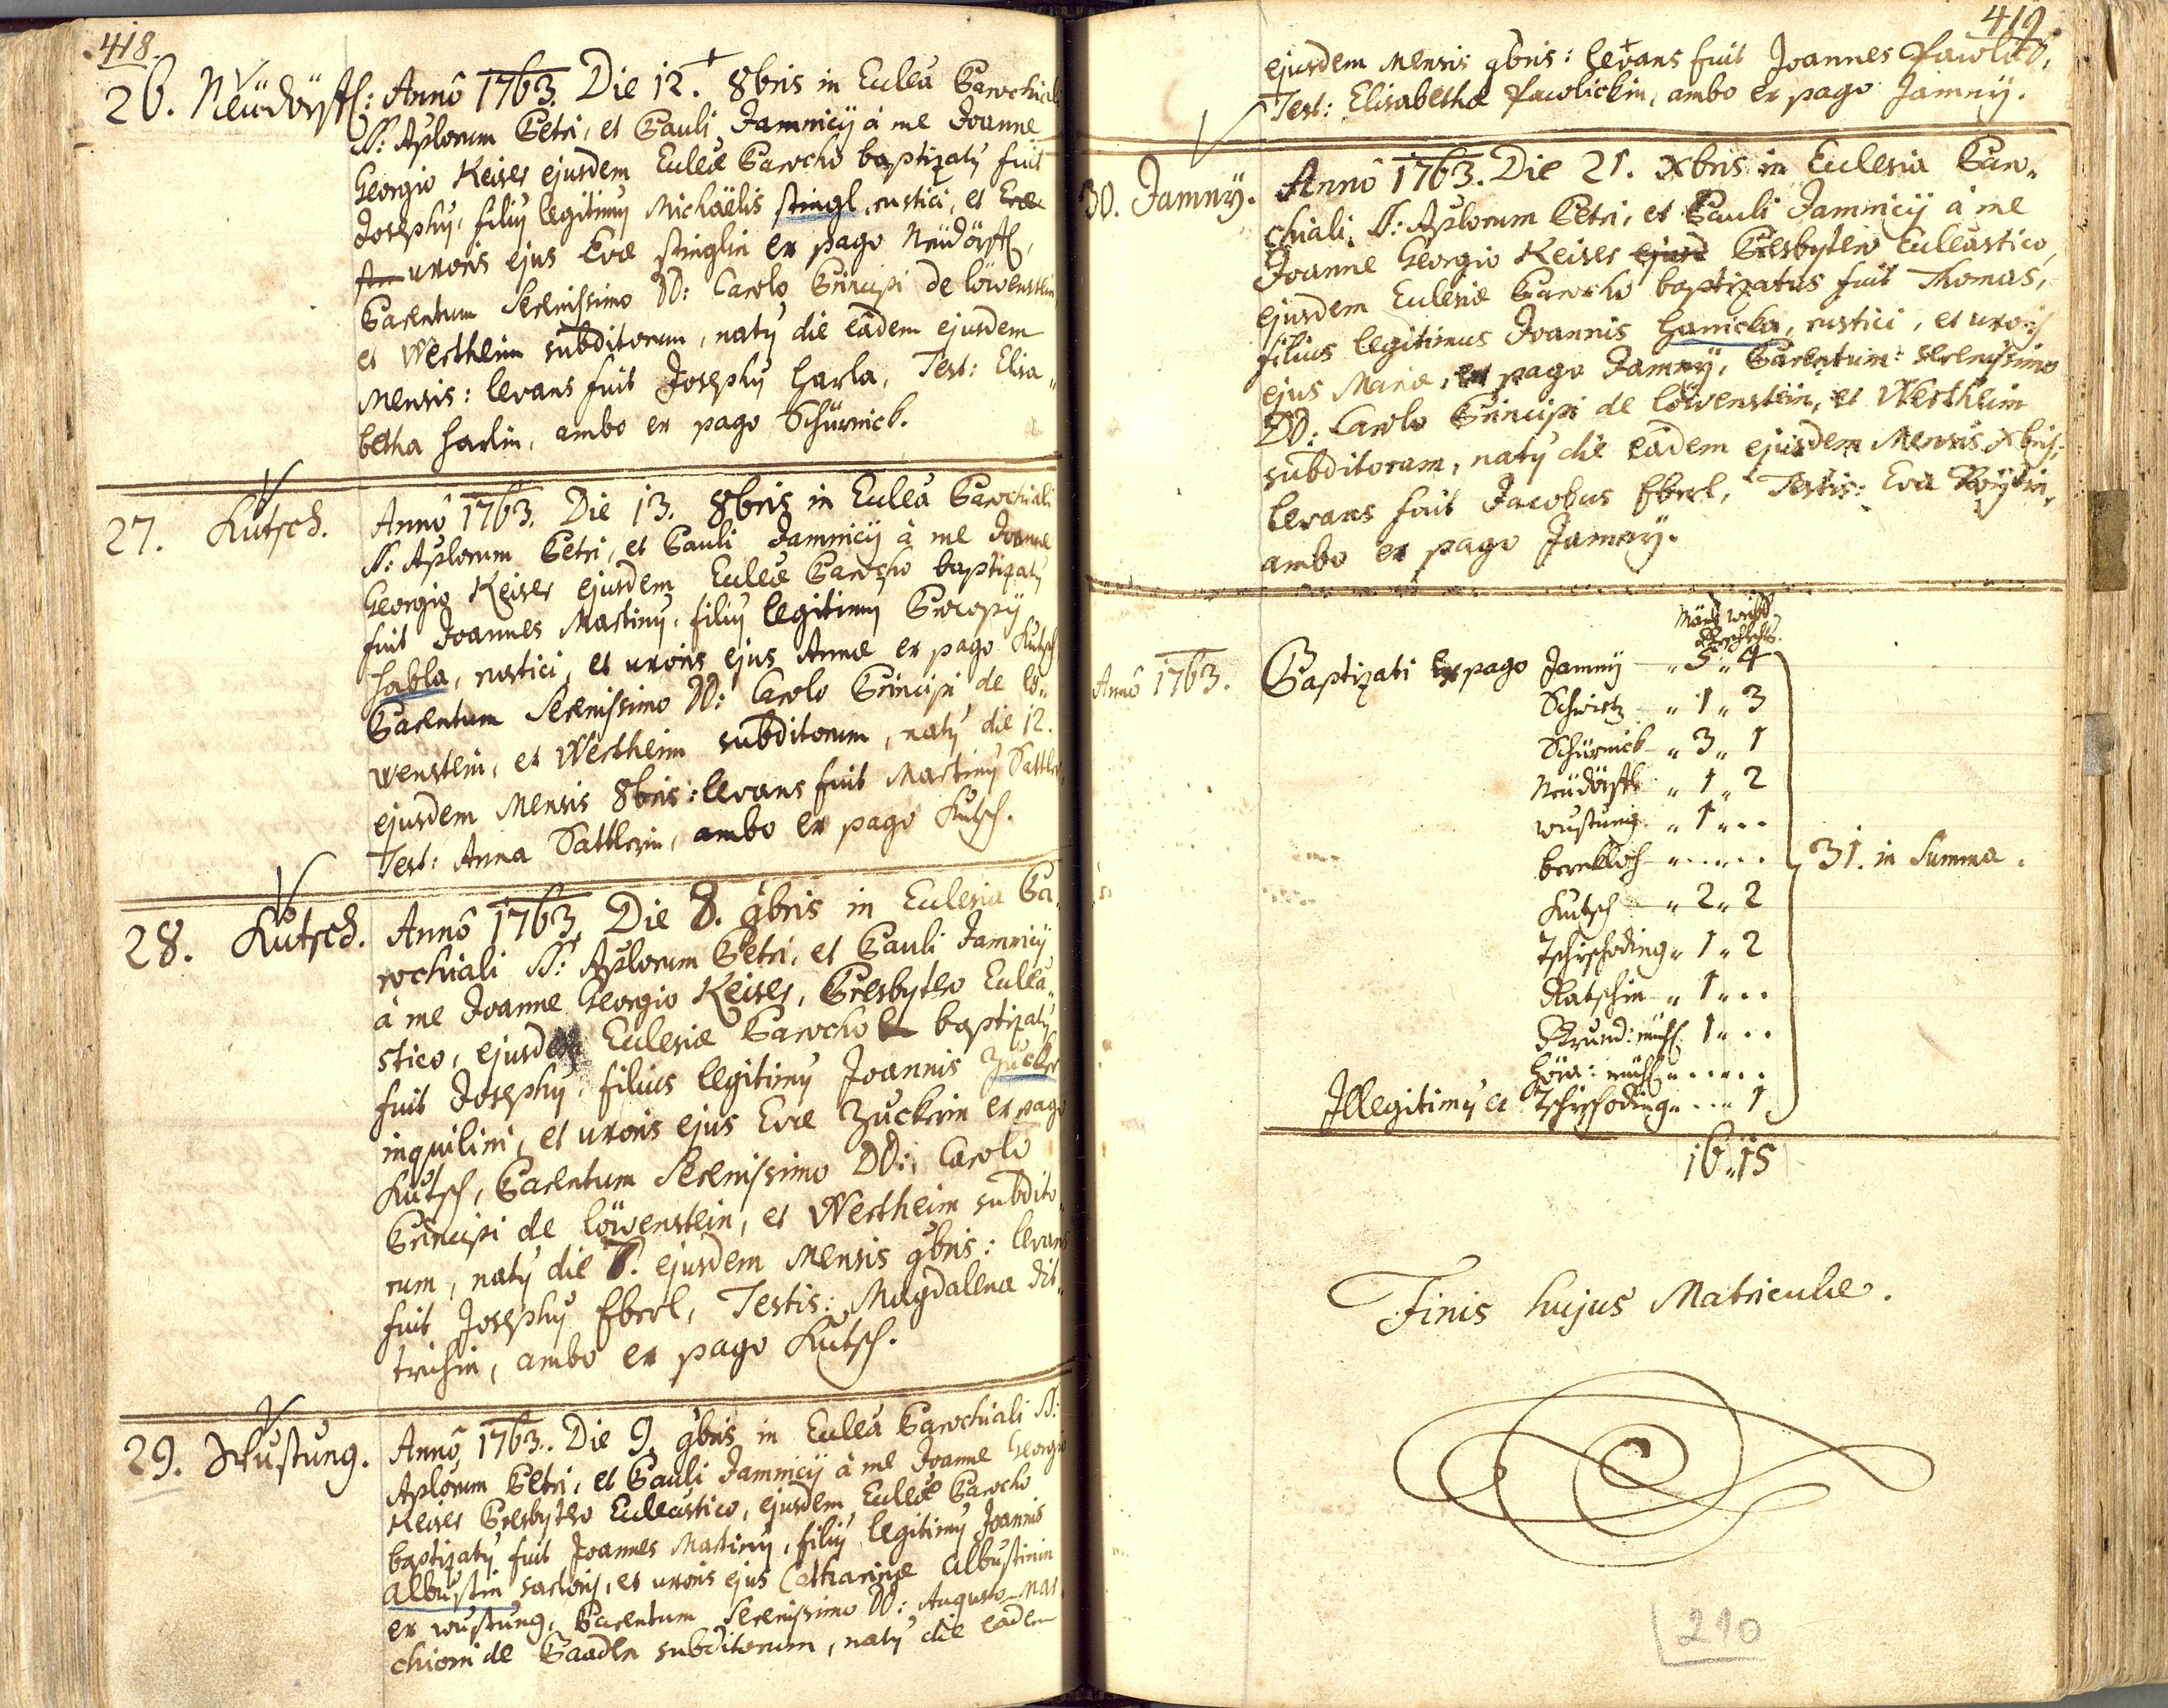 418.
26. Neüdörfl: Annô 1763. Die 12. 8bris in Eccleâ Parochiali
SS: Aplorum Petri, et Pauli Jamnicÿ à me Joanne
Georgio Keiser ejusdem Eccleæ Parocho baptizatÿ fuit
Josephÿ, filiÿ legitimÿ Michäelis Stingl, rustici, et
uxoris ejus Evæ Stinglin ex pago Neüdörfl,
Parentum Serenissimo DD: Carolo Principi de löwenstein
et Wertheim subditorum, natÿ die eâdem ejusdem
Mensis: levans fuit Josephÿ Harla, Test: Elisa„
betha Harlin, ambo ex pago Schürnick.
27. Kutsch. Annô 1763. Die 13. 8bris in Eccleâ Parochiali
SS: Aplorum Petri, et Pauli Jamnicÿ à me Joanne
Georgio Keiser ejusdem Eccleæ Parocho baptizatÿ
fuit Joannes Martinÿ, filiÿ legitimÿ Procopÿ
Habla, rustici, et uxoris ejus Annæ ex pago Kutsch
Parentum Serenissimo DD: Carolo Principi de lö„
wenstein, et Wertheim subditorum, natÿ die 12.
ejusdem Mensis 8bris: levans fuit Martinÿ Sattler,
Test: Anna Sattlerin, ambo ex pago Kutsch.
28. Kutsch. Annô 1763. Die 8. 9bris in Ecclesia Pa„
rochiali SS: Aplorum Petri, et Pauli Jamnicÿ
à me Joanne Georgio Keiser, Presbytero Ecclea„
stico, ejusdem Ecclesiæ Parocho baptizatÿ
fuit Josephÿ, filius legitimÿ Joannis Zucker
inquilini, et uxoris ejus Evæ Zuckrin ex pago
Kutsch, Parentum Serenissimo DD: Carolo
Principi de löwenstein, et Wertheim subdito„
rum, natÿ die 7. ejusdem Mensis 9bris: levans
fuit Josephÿ Eberl, Testis: Magdalena Dit„
trichin, ambo ex pago Kutsch.
29. Wustung. Annô 1763. Die 9. 9bris in Eccleâ Parochiali SS:
Aplorum Petri, et Pauli Jamnicÿ à me Joanne Georgio
Keiser Presbytero Eccleastico, ejusdem Eccleæ Parocho
baptizatÿ fuit Joannes Martinÿ, filiÿ legitimÿ Joannis
Albustin sartoris, et uxoris ejus Catharinæ Albustinin
ex wustung, Parentum Serenissimo DD: Augusto Mar„
chioni de Baaden subditorum, natÿ die eâdem
419.
ejusdem Mensis 9bris: levans fuit Joannes Pawlick,
Test: Elisabetha Pawlickin, ambo ex pago Jamnÿ.
30. Jamnÿ. Annô 1763. Die 21. Xbris in Ecclesia Paro„
chiali SS: Aplorum Petri, et Pauli Jamnicÿ à me
Joanne Georgio Keiser ejusd Presbytero Eccleastico,
ejusdem Ecclesiæ Parocho baptizatus fuit Thomas,
filius legitimus Joannis Hanicka, rustici, et uxoris
ejus Mariæ, ex pago Jamnÿ, Parentum: serenissimo
DD: Carolo Principi de löwenstein, et Wertheim
subditorum, natÿ die eâdem ejusdem Mensis Xbris:
levans fuit Jacobus Eberl, Testis: Eva
ambo ex pago Jamnÿ.
Mänl: weibl:
Geschlechts.
Annô 1763. Baptizati ex pago Jamny „ 5 „ 4
Schwirtz „ 1 „ 3
Schürnick „ 3 „ 1
Neüdörfl „ 1 „ 2
wustung „ 1 „ . .
„ . . . „ . . 31. in Summa.
Kutsch „ 2 „ 2
Tschischoding „ 1 „ 2
Ratschin „ 1 „ . .
Grund: mühl. 1 „ . .
mühl „ . . „ . .
Illegitimÿ ex Tschischoding „ . . „ 1
16 „ 15
Finis hujus Matriculæ.
210